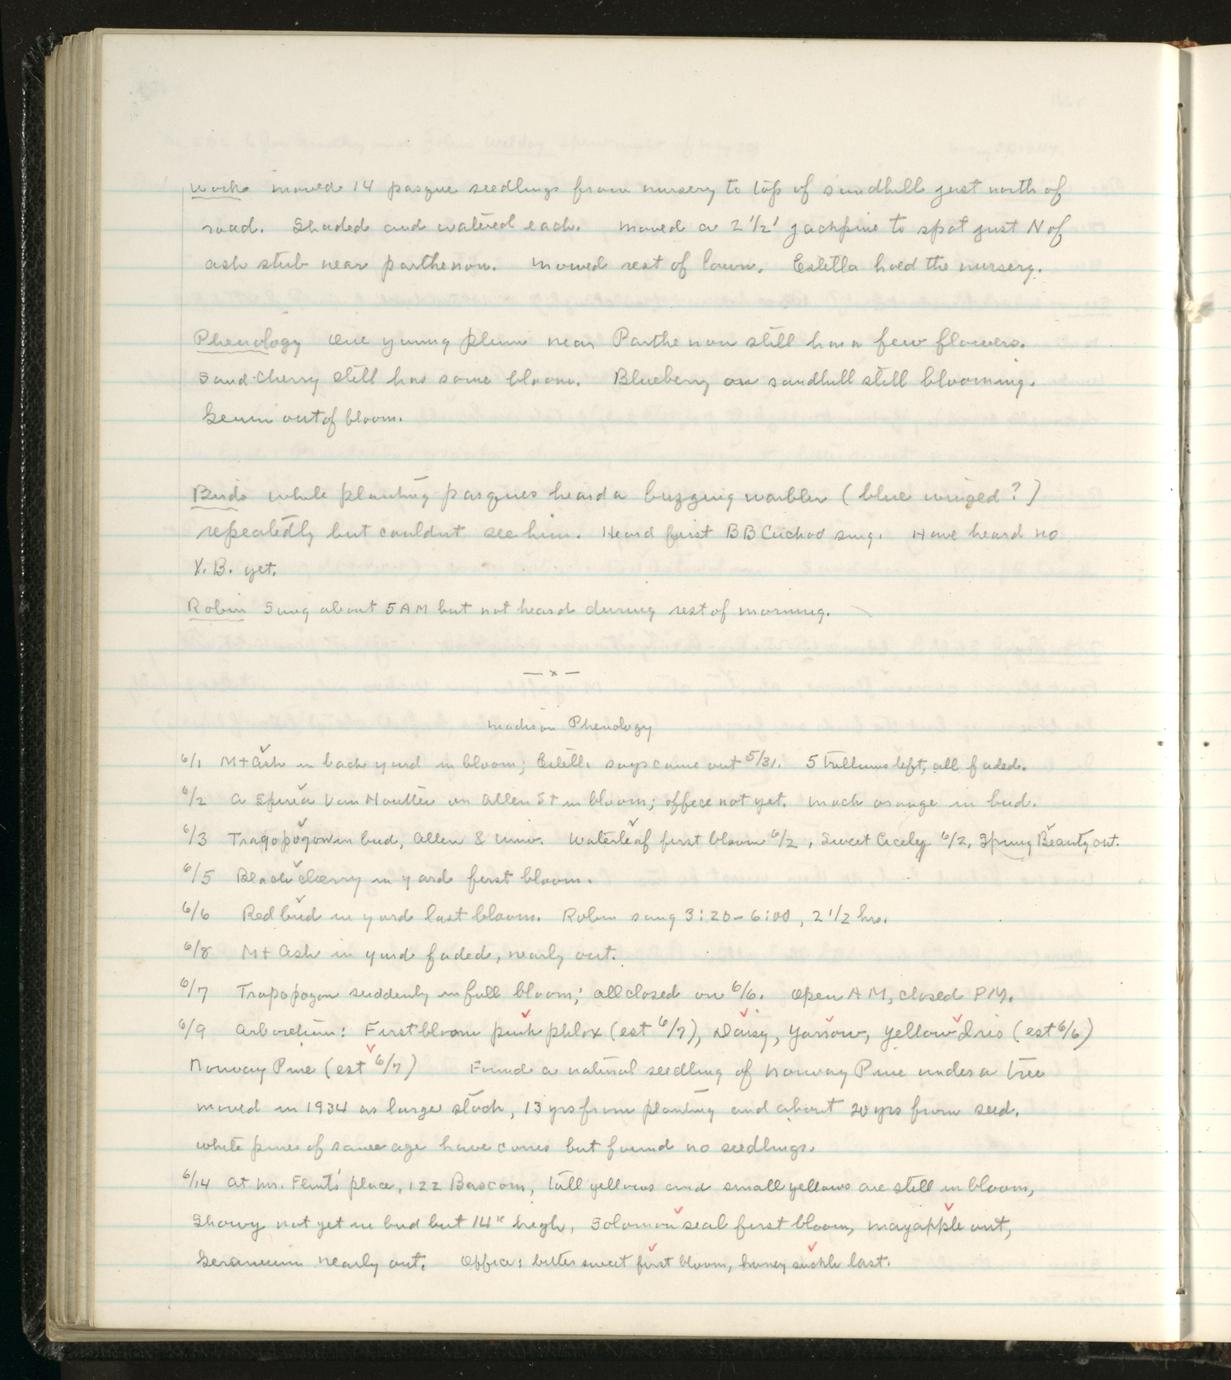 Work moved 14 pasque seedlings from nursery to top of sandhill just north of
road. Shaded and watered each. Moved a 2 1/2' jackpine to spot just N of
ash stub near parthenon. Mowed rest of lawn. Estella hoed the nursery.
Phenology One young plum near Parthenon still has a few flowers.
Sand-Cherry still has some bloom. Blueberry on sandhill still blooming.
Geum out of bloom.
Birds While planting pasques heard a buzzing warbler (blue winged?)
repeatedly but couldnt see him. Heard first BB Cuckoo sing. Have heard no
Y.B. yet.
Robin Sang about 5 AM but not heard during rest of morning.
— x —
Madison Phenology
6/1 Mt Ash in back yard in bloom; Estella says came out 5/31. 5 Trilliums left, all faded.
6/2 A Spirea Van Houttei on Allen St in bloom; office not yet. Mock orange in bud.
6/3 Tragopogon in bud, Allen & Univ. Waterleaf first bloom 6/2, Sweet Cicely 6/2, Spring Beauty out.
6/5 Black cherry in yard first bloom.
6/6 Redbud in yard last bloom. Robin sang 3:20-6:00, 2 1/2 hrs.
6/8 Mt Ash in yard faded, nearly out.
6/7 Trapopogon suddenly in full bloom; all closed on 6/6. Open AM, closed PM.
6/9 Arboretum: First bloom pink phlox (est 6/7), Daisy, Yarrow, Yellow Iris (est 6/6)
Norway Pine (est 6/7) Found a natural seedling of Norway Pine under a tree
moved in 1934 as large stock, 13 yrs from planting and about 20 yrs from seed.
White pines of same age have cones but found no seedlings.
6/14 At Mr. Flint's place, 122 Bascom, tall yellows and small yellows are still in bloom,
Showy not yet in bud but 14" high, Solomon seal first bloom, mayapple out,
Geranium nearly out. Office: bittersweet first bloom, honeysuckle last.